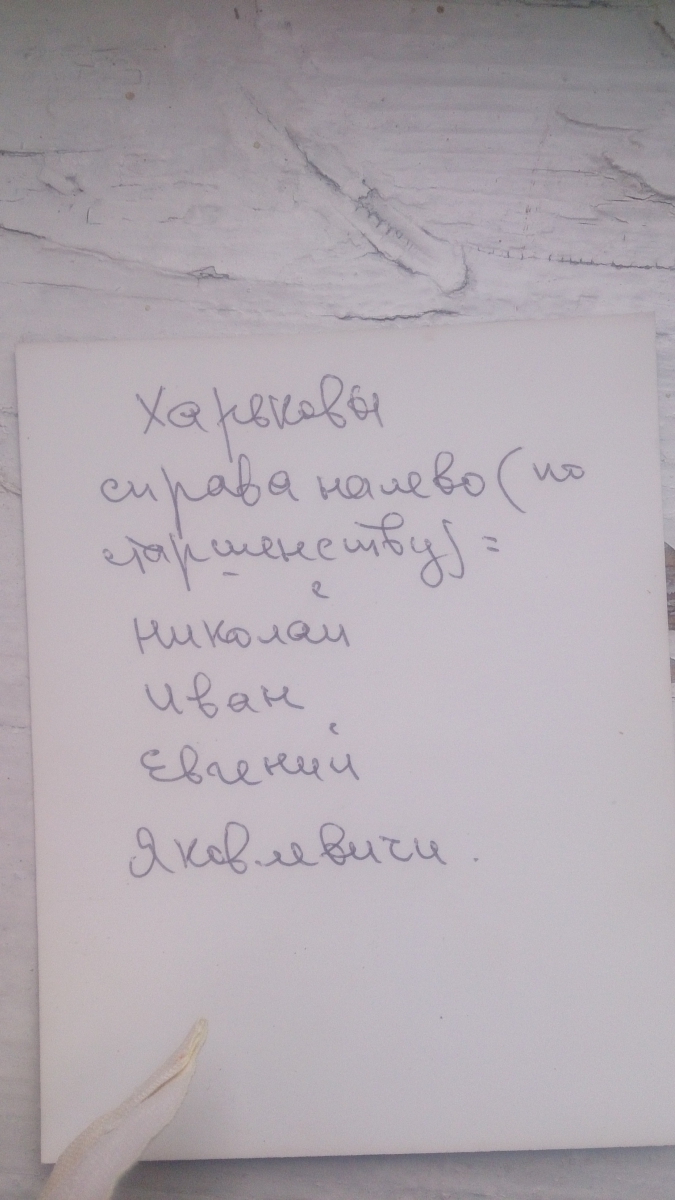 Харьковы
справа налево (по
старшенству) =
Николай
Иван
Евгений
Яковлевичи.